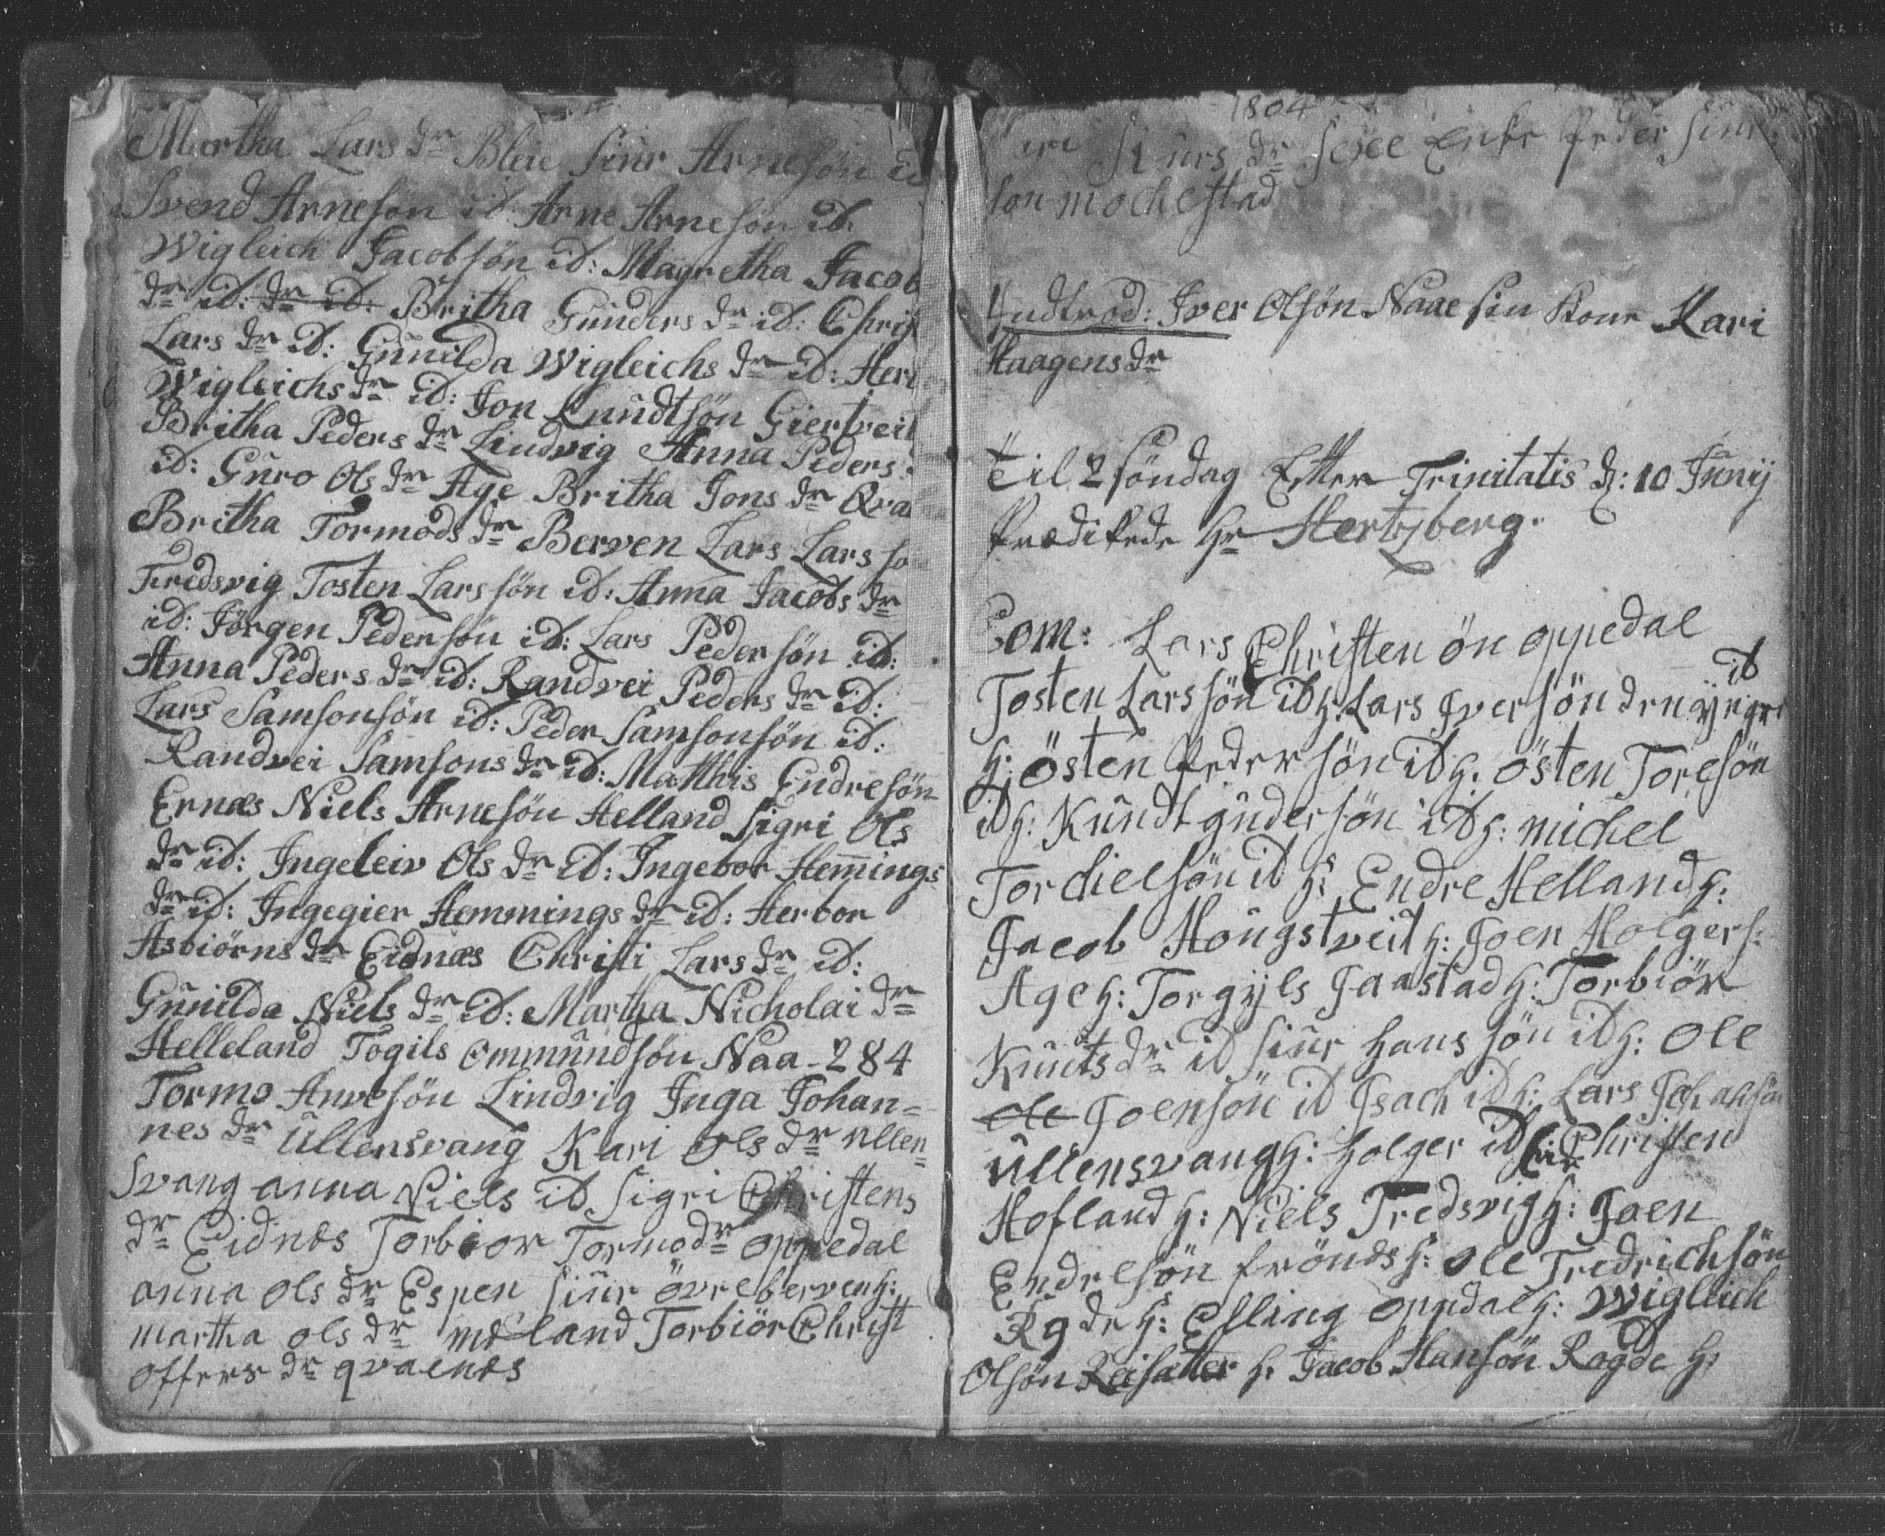 Martha Lars dr Bleie Siur Arnesön id
Svend Arnesön id: Arne Arnesön id:
Wigleich Jacobsön id: Magretha Jacob
dr id: dr id: Britha Gunders dr id: Chris
Lars dr id: Gunilda Wigleichs dr id: Her
Wigleichs dr id: Jon Knudtsön Giertveit
Britha Peders dr Lindvig Anna Peders
id: Guro Ols dr Age Britha Jons dr Qva
Britha Tormods dr Berven Lars Lars sö
Tredsvig Tosten Lars sön id: Anna Jacobs dr
id: Jörgen Pedersön id: Lars Peder sön id:
Anna Peders dr id: Randvei Peders dr id:
Lars Samsonsön id: Peder Samsonsön id:
Randvei Samsons dr id: Mathis Endresön
Ernæs Niels Arnesön Helland Sigri Ols
dr id: Ingeleiv Ols dr id: Ingebor Hemmings
dr id: Ingegier Hemmings dr id: Herbor
Asbiörns dr Eidnæs Christi Lars dr id:
Gunilda Niels dr id: Martha Nicholai dr
Helleland Togils Ommundsön Naa - 284
Tormo Anvesön Lindvig Inga Johan=
nes dr Ullensvang Kari Ols dr Ullen=
Svang anna Niels id Sigri Christens
dr Eidnes Torbior Tormo dr oppedal
anna ols dr Espen Siur övrebervenh:
martha ols dr meland Torbiör Christ
offers dr qvalnes
1804
Siurs dr Sexe Enke Peder Siur
son mochestad
Indtrod: Iver Olsön Naae sin Kone Kari
Haagens dr
Til 2 söndag Efter Trinitatis d: 10 Junij
Prædikede Hr Hertzberg.
Com: Lars Christen ön oppedal
id
Tosten Lars sön id h. Lars Iver sön den yngre
h: östen Peder sön id h. östen Toresön
id h: Knudt gudersön id h: michel
Torchielsön id h: Endre Helland h:
Jacob Hougstveit h: Joen Holger h:
Age h: Torgyls Jaastad h: Torbiör
Knuts dr id Siur hans sön id h: Ole
Ole Joensön id Isach id h: Lars Johansön
Ullensvang h: holger id h: Christen
Hofland h: Niels Tredsvig h: Joen
Endresön frönds h: Ole Fredrichsön
Rgde h: Elling oppdal h: Wigleich
Olsön Reisætter h: Jacob Hansön Rogde h: